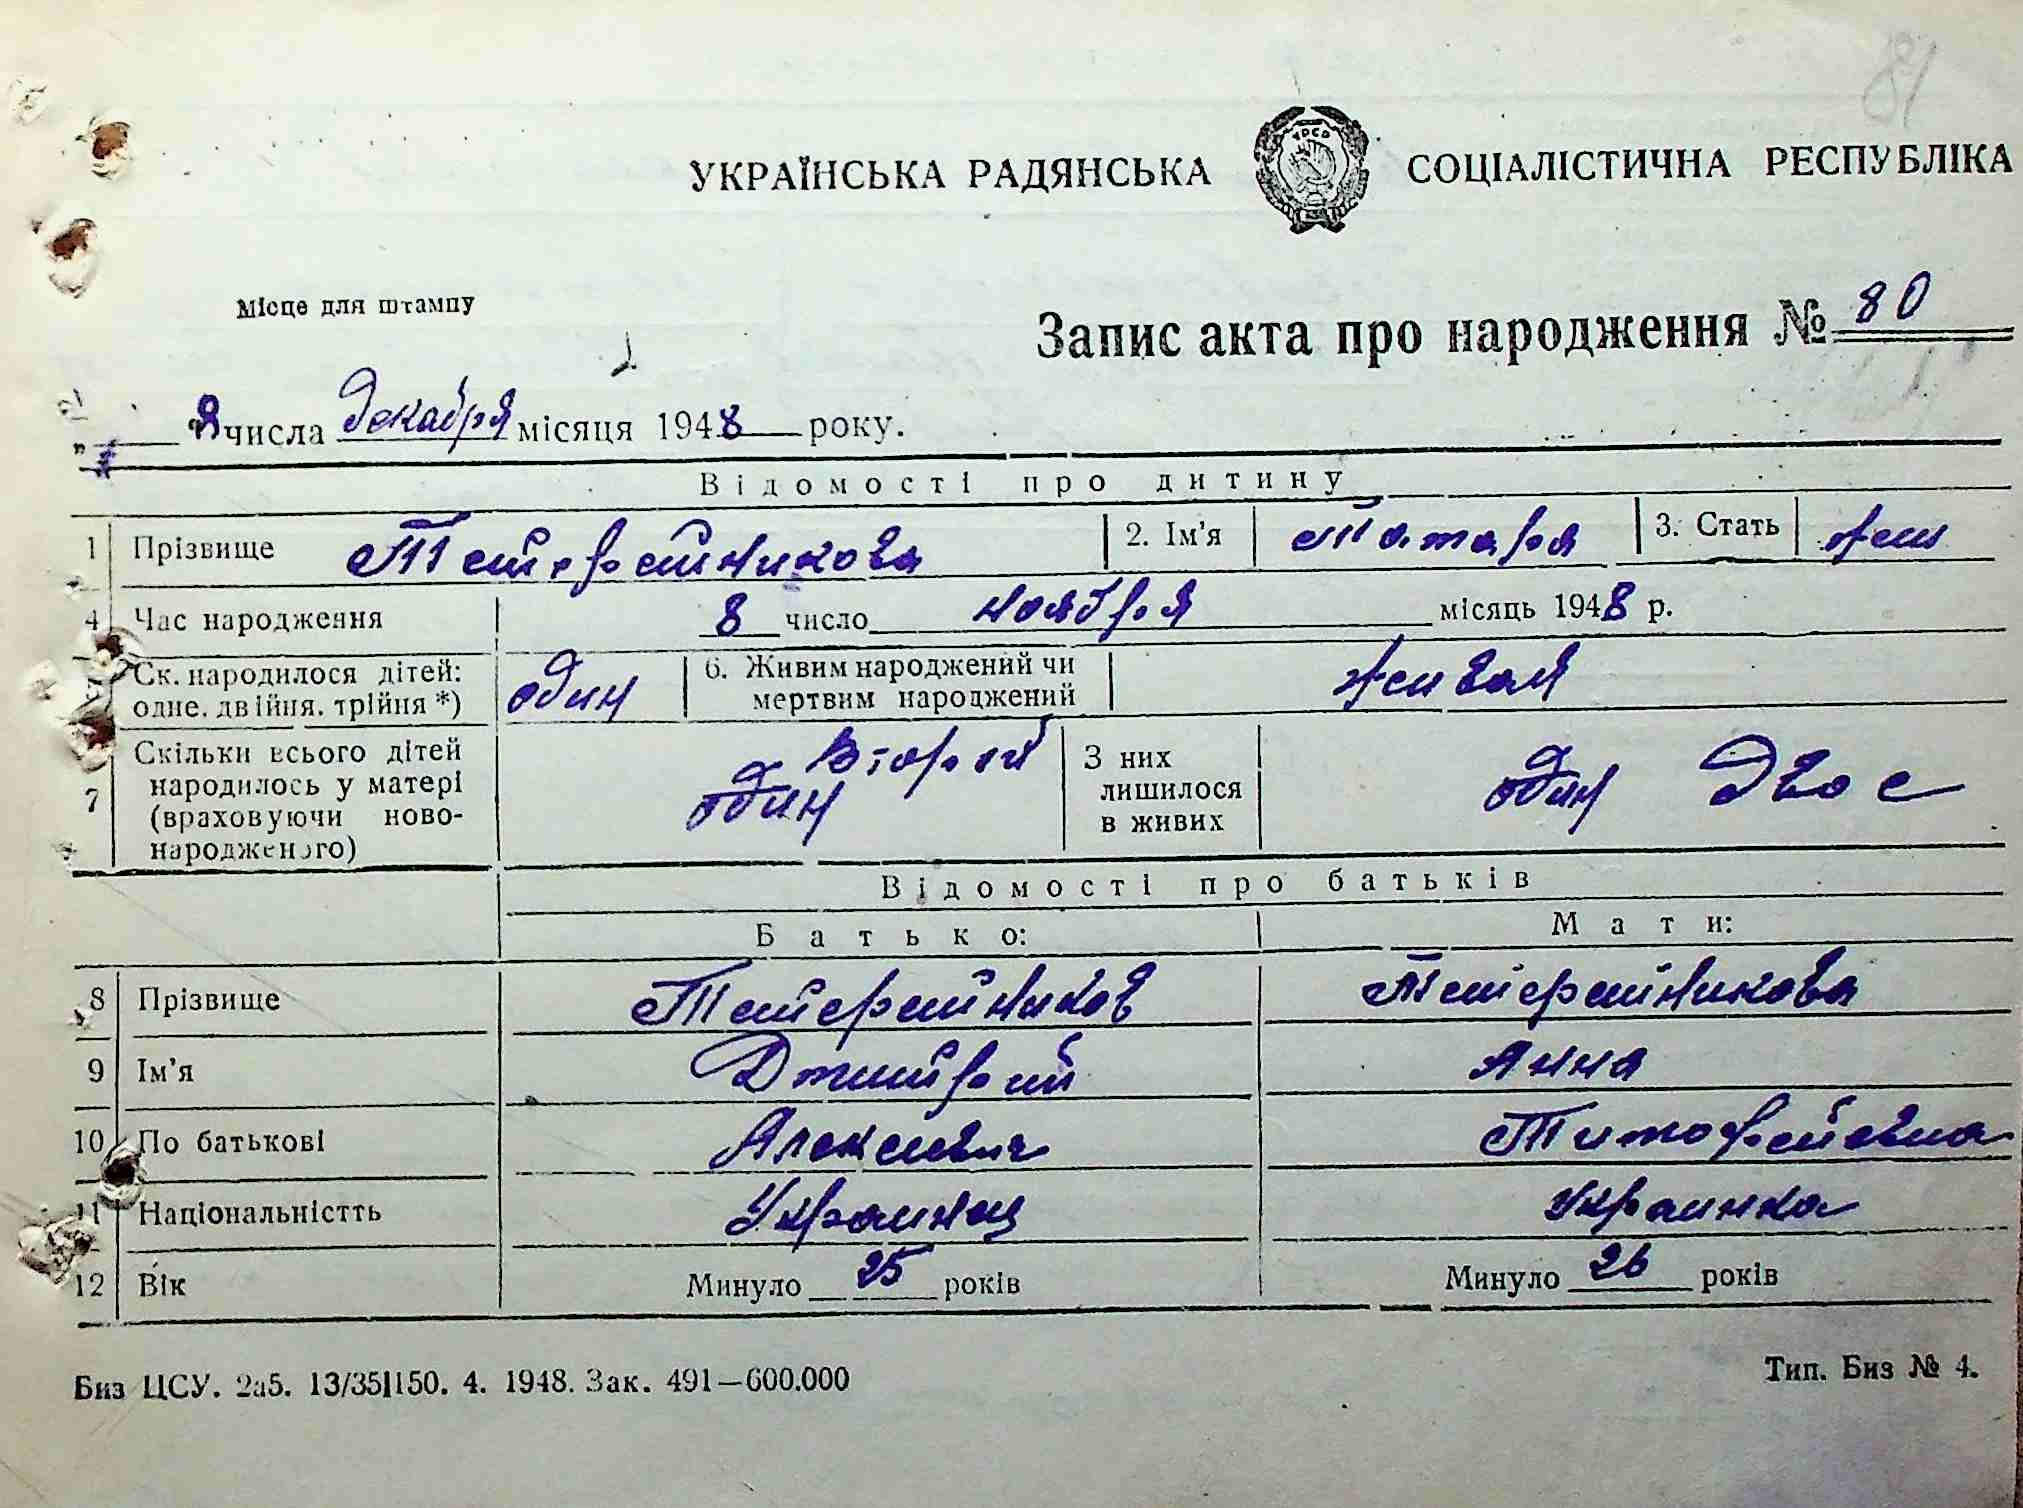 81
УКРАЇНСЬКА РАДЯНСЬКА СОЦІАЛІСТИЧНА РЕСПУБЛІКА
УРСР
Місце для штампу
Запис акта про народження № 80
" 8 числа декабря місяця 1948 року.
Відомості про дитину
1 Прізвище Тейфейникова 2. Ім'я Тамара 3. Стать жен
4 Час народження 8 число ноября місяць 1948 р.
Ск. народилося дітей: одне, двійня, трійня *) один 6. Живим народжений чи мертвим народжений живая
7 Скільки всього дітей народилось у матері (враховуючи новонародженого) один второй З них лишилося в живих один двое
Відомості про батьків
Батько: Мати:
8 Прізвище
9 Ім'я Дмитрий Анна
10 По батькові Алексеевич Тимофеевна
11 Національністть Украинец Украинка
12 Вік Минуло 25 років Минуло 26 років
Биз ЦСУ. 2а5. 13/351150. 4. 1948. Зак. 491—600.000 Тип. Биз № 4.